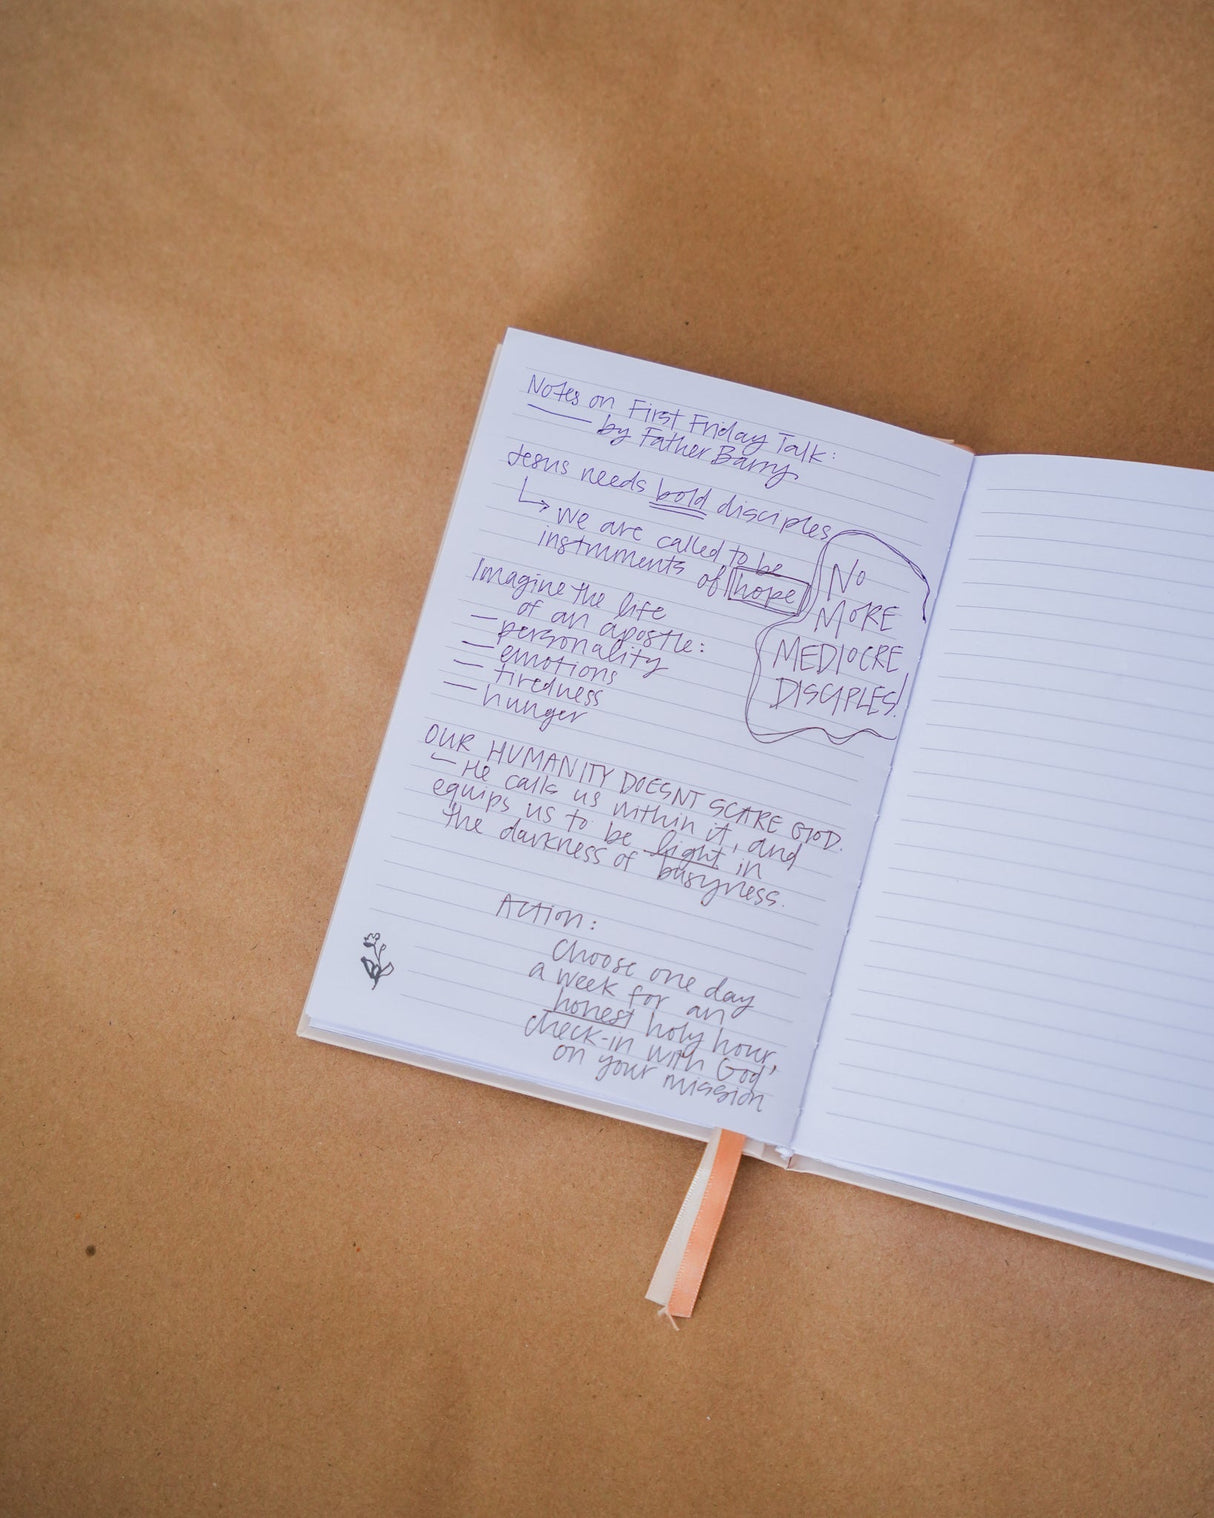 Notes on First Friday Talk:
— by Father Barry
Jesus needs bold disciples
↳ we are called to be
instruments of hope
NO
MORE
MEDIOCRE
DISCIPLES!
Imagine the life
of an apostle:
— personality
— emotions
— tiredness
— hunger
OUR HUMANITY DOESNT SCARE GOD.
— He calls us within it, and
equips us to be light in
the darkness of busyness.
Action:
Choose one day
a week for an
honest holy hour,
check-in with God,
on your mission